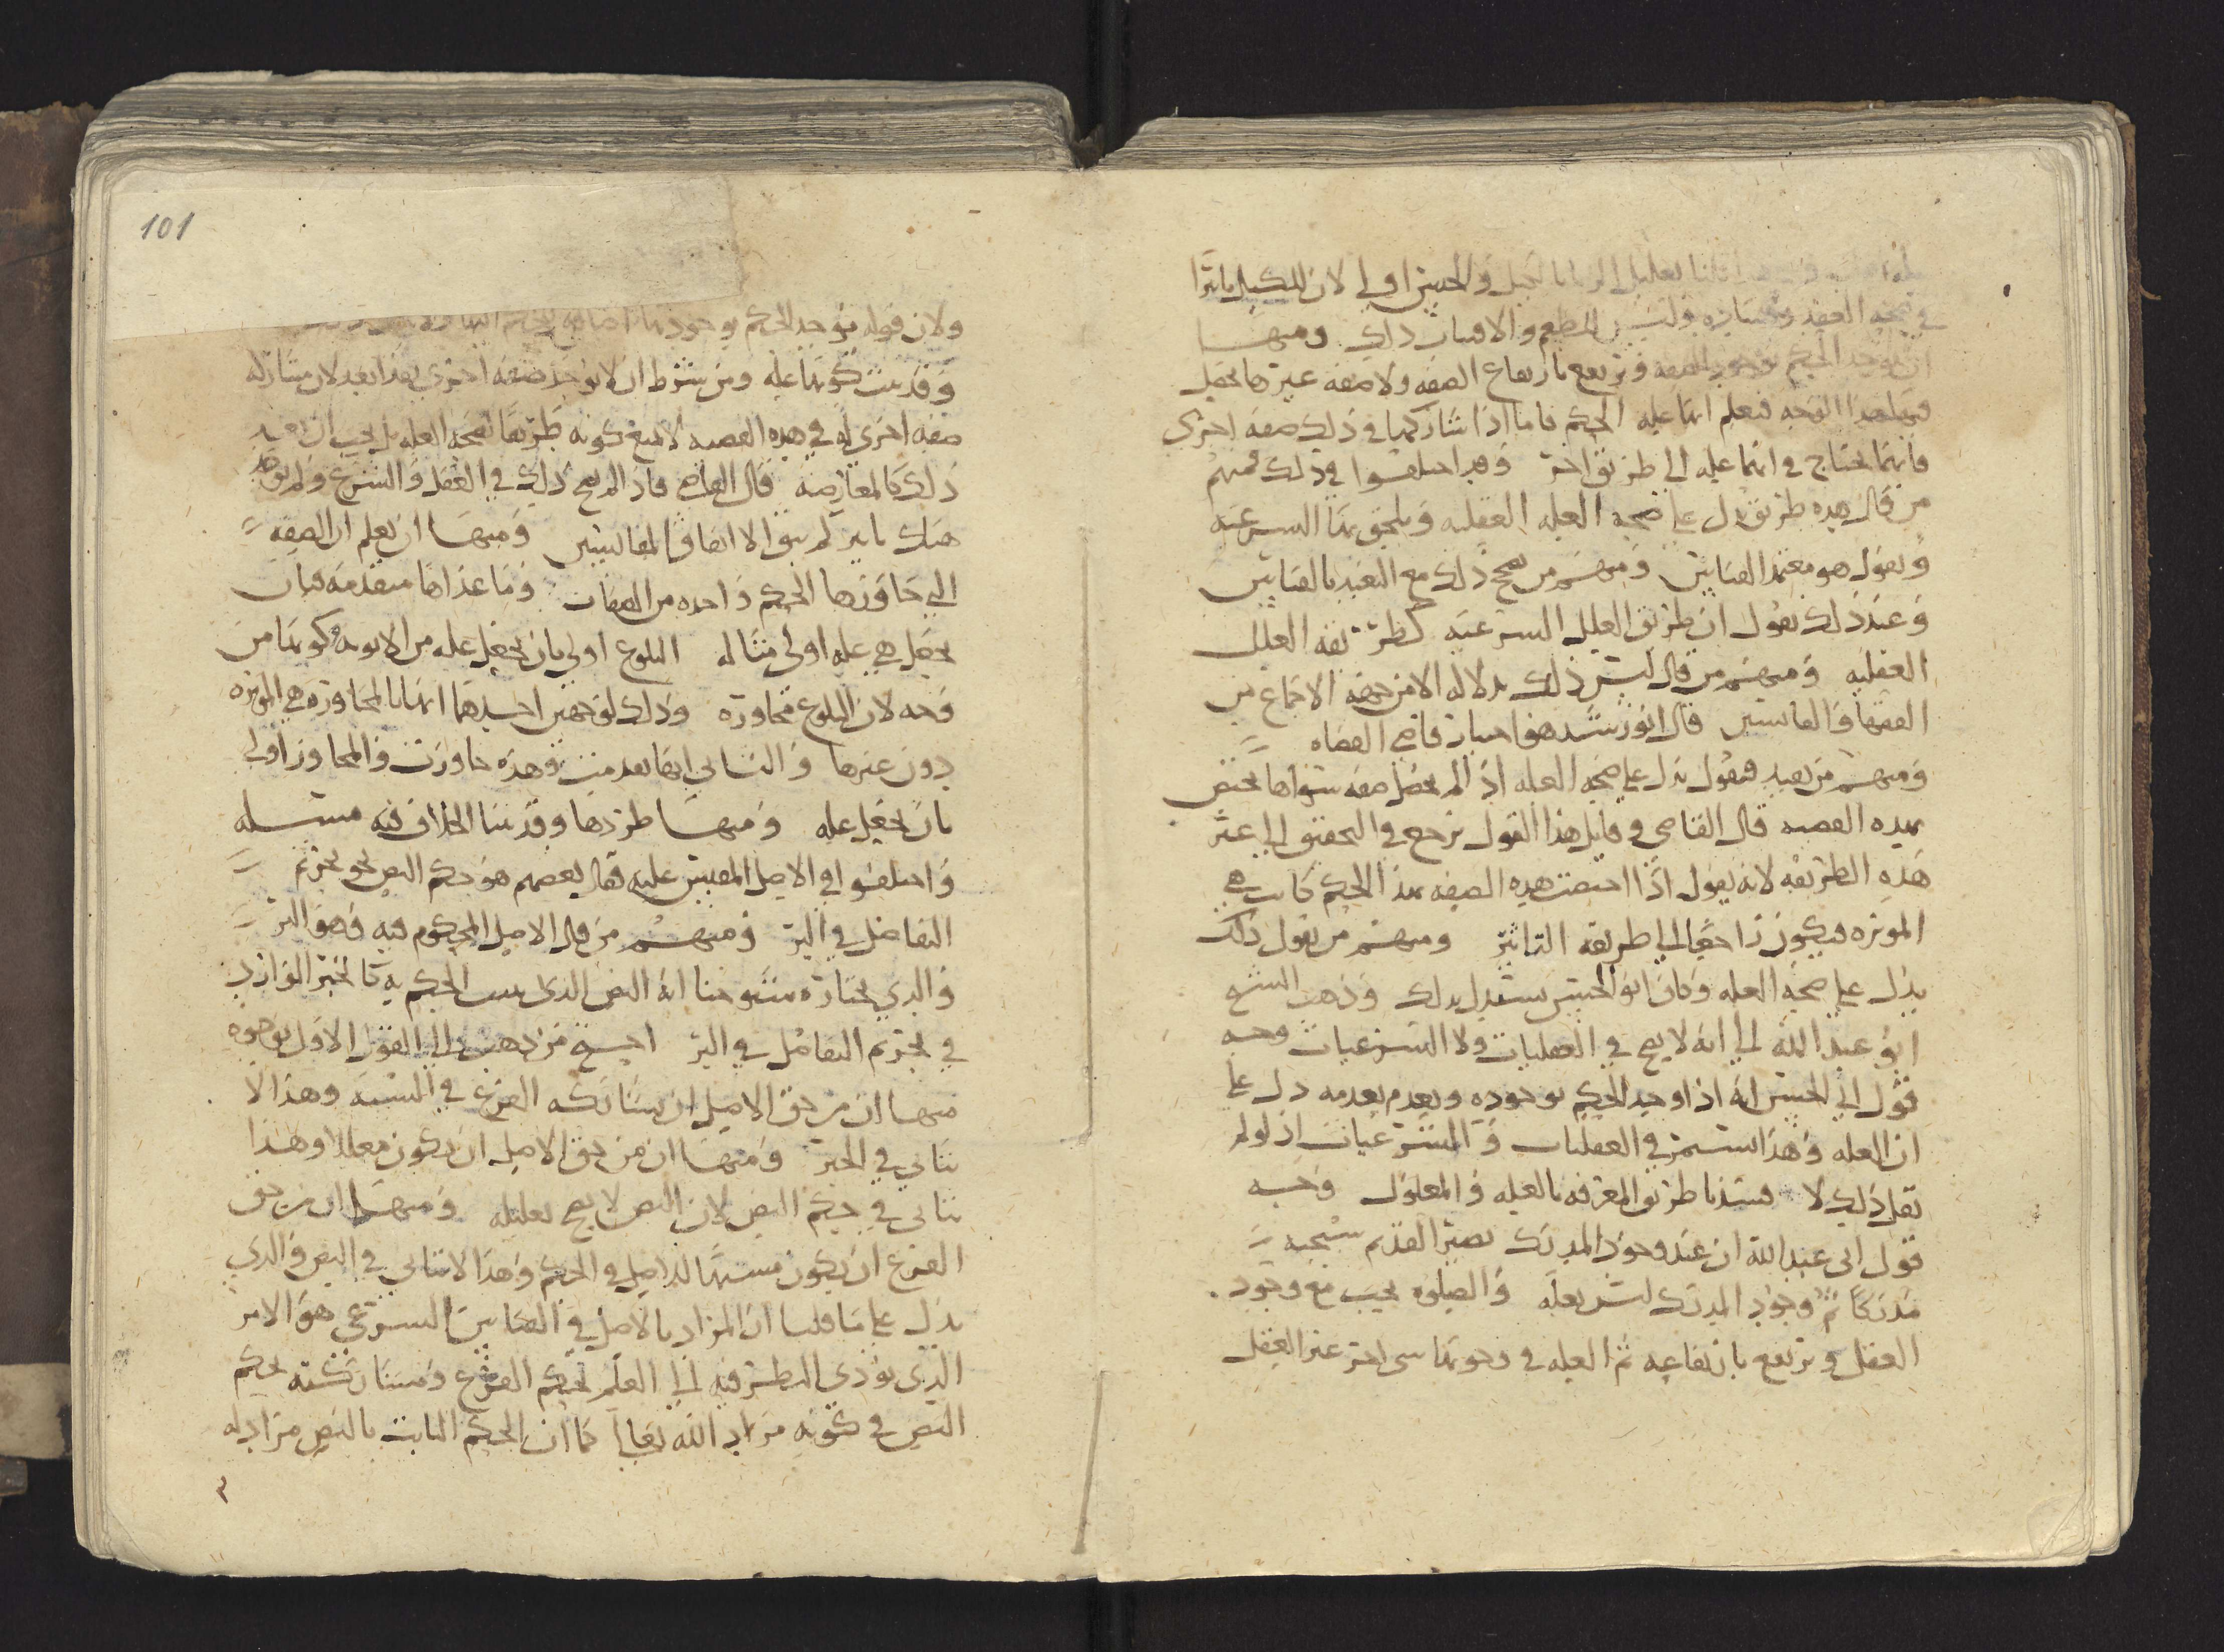 قلنا تعليل الربا بالكيل والجنس اولى لان للكيل تاثيرا
في صحة العقد وفساده وليس للطعم والاقتيات ذلك ومنها
ان يوجد الحكم بوجود الصفه ويرتفع بارتفاع الصفه ولا صفه غيرها يحصل
فيها هذا الوجه فنعلم انها عله الحكم فاما اذا شاركها في ذلك صفه اخرى
فانها تحتاج في انها عله الى طريق اخر وقد اختلفوا في ذلك فمنهم
من قال هذه طريق يدل على صحه العله العقليه ويلحق بها الشرعيه
ويقول هو معتمد القياس ومنهم من يصحح ذلك مع التعبد بالقياس
وعند ذلك يقول ان طريق العلل الشرعيه كطريقه العلل
العقليه ومنهم من قال ليس ذلك بدلاله الا من جهه الاجماع من
الفقها والقائسين قال ابو رشيد هو اختيار قاضي القضاه
ومنهم من يعيد فيقول يدل على صحه العله اذا لم يحصل صفه سواها تختص
بهذه القصيه قال القاضي وقائل هذا القول يرجع في التحقيق الى غير
هذه الطريقه لانه يقول اذا اختصت هذه الصفه بهذا الحكم كانت هي
الموثره فيكون راجعا الى طريقه التاثير ومنهم من يقول ذلك
يدل على صحه العله وكان ابو الحسن يستدل بذلك وذهب الشيخ
ابو عبد الله الى انه لا يصح في العقليات ولا الشرعيات وجه
قول ابي الحسن انه اذا وجد الحكم بوجوده ويعدم بعدمه دل على
ان العله وهذا يستمر في العقليات والشرعيات اذ لو لم
نقل ذلك لا فسدنا طريق المعرفه بالعله والمعلول وجه
قول ابي عبد الله ان عند وجود المدرك يصير القديم سبحنه
مدركا ثم وجود المدرك ليس بعله والصلوه تجب مع وجود
العقل ويرتفع بارتفاعه ثم العله في وجوبها شي اخر غير العقل
101
ولان قوله يوجد الحكم بوجودها
وقد بينت كونها عله ومن شرط ان لا يوجد صفه اخرى بعدا بعد لان مشاركه
صفه اخرى له في هذه القصيه لا تمنع كونه طريقا لصحه العله بل يجب ان
ذلك كالمعارضه قال القاضي فاذا لم يصح ذلك في العقل والشرع ولم يوجد
هناك تاثير لم يبق الا اتفاق القائسين ومنها ان يعلم ان الصفه
التي جاورها الحكم واحده من الصفات وما عداها متقدمه فبان
يجعل هي عله اولى مثاله البلوغ اولى بان يجعل عله من الابوه وكونها من
وجه لان البلوغ مجاوره وذلك لوجهين احدهما انها بالمجاوره هي الموثره
دون غيرها والثاني انها بعدمت وهذه جاورت والمجاور اولى
بان يجعل عله ومنها طردها وقد بينا الخلاف فيه مسئله
واختلفوا في الاصل المقيس عليه فقال بعضهم هو حكم النص نحو تحريم
التفاضل في البر ومنهم من قال الاصل المحكوم فيه وهو البر
والذي يختاره شيوخنا انه النص الذي يثبت الحكم به كالخبر الوارد
في تحريم التفاضل في البر احتج من ذهب الى القول الاول بوجوه
منها ان من حق الاصل ان يشاركه الفرع في الشبه وهذا لا
يتاتى في الخبر ومنها ان من حق الاصل ان يكون معللا وهذا
يتاتى في حكم النص لان النص لا يصح تعليله ومنها ان من حق
الفرع ان يكون مشبها للاصل في الحكم وهذا لا يتاتى في النص والذي
يدل على ما قلنا ان المراد بالاصل في القياس الشرعي هو الامر
الذي يؤدي النظر فيه الى العلم بحكم الفرع ومشاركته لحكم
النص في كونه مراد الله تعالى كما ان الحكم الثابت بالنص مراد له